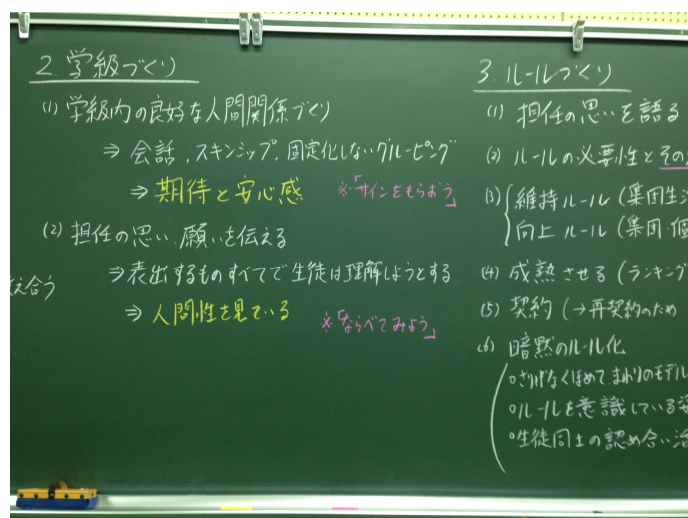 2. 学級づくり
(1) 学級内の良好な人間関係づくり
⇒ 会話、スキンシップ、固定化しないグルーピング
⇒ 期待と安心感 ※「サインをもらおう」
(2) 担任の思い、願いを伝える
⇒表出するものすべてで生徒は理解しようとする
⇒ 人間性を見ている ※「ならべてみよう」
え合う
3. ルールづくり
(1) 担任の思いを語る
(2) ルールの必要性とその
(3) 維持ルール (集団生活
向上ルール (集団・個
(4) 成熟させる (ランキング
(5) 契約 (→再契約のため
(6) 暗黙のルール化
○さりげなくほめて、まわりのモデル
○ルールを意識している姿
○生徒同士の認め合い活